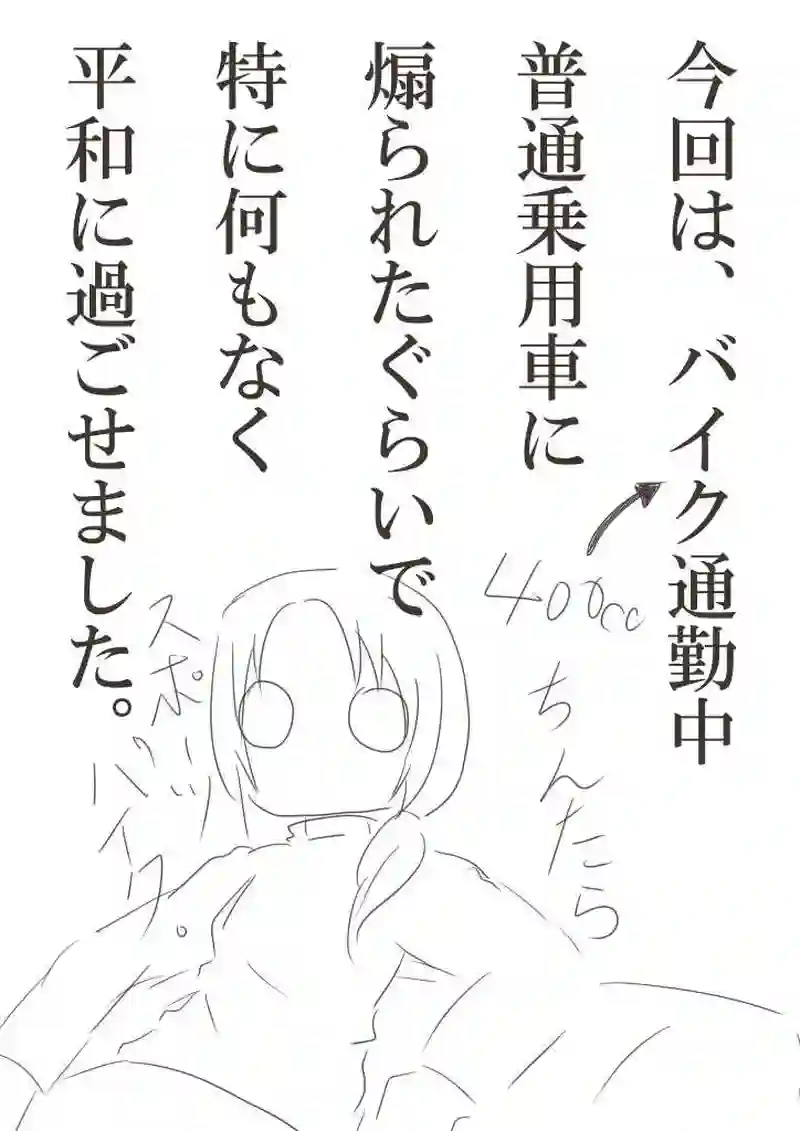 今回は、バイク通勤中
普通乗用車に
煽られたぐらいで
特に何もなく
平和に過ごせました。
400cc
ちんたら
スポ
バイク。